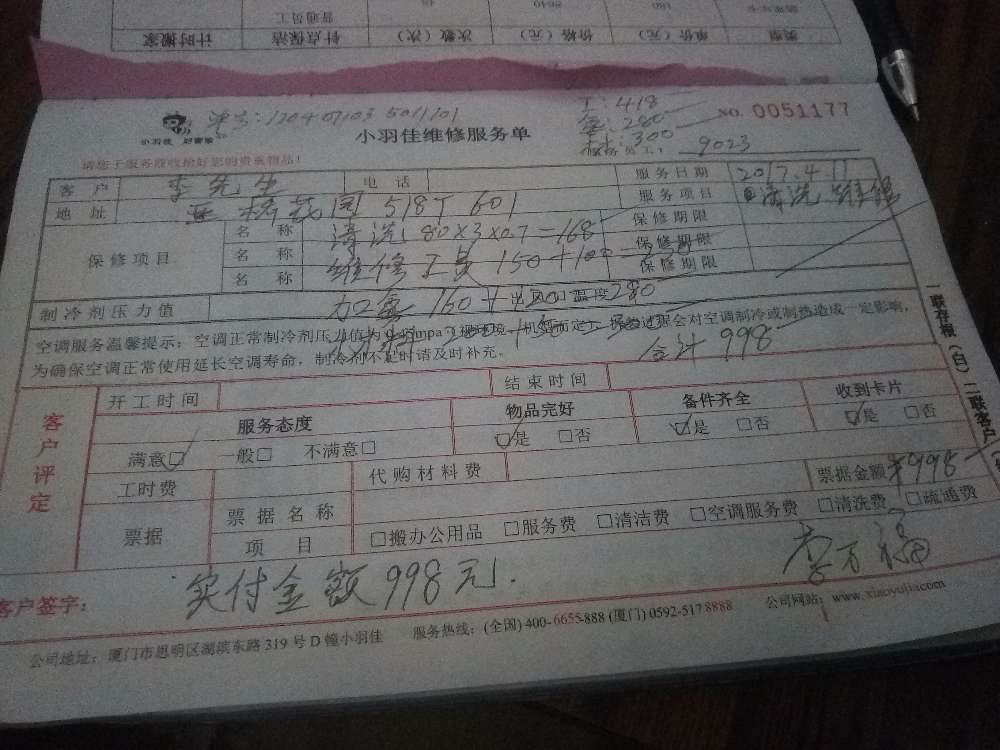 类型 单价（元） 价格（元） 次数（次） 针点保洁 计时搬家
180 8640 48 普通员工
单号：120407103 5011101
工：418
氟：280
材：300
NO. 0051177
小羽佳 好管家
小羽佳维修服务单
9023
请您于服务前收拾好您的贵重物品！
客 户 李先生 电 话 服务日期 2017.4.11
地 址 园 518T 601 服务项目 清洗 维保
保修项目 名 称 清洗 80×3×0.7=168 保修期限
名 称 维修工费 150+100 保修期限
名 称 保修期限
制冷剂压力值 加氟 160+120 出风口温度 280
空调服务温馨提示：空调正常制冷剂压力值为0.45mpa
会对空调制冷或制热造成一定影响，
为确保空调正常使用延长空调寿命，制冷剂不足时请及时补充。 合计 998
一联存根（白）二联客户
客户评定
开工时间 结束时间
服务态度 物品完好 备件齐全 收到卡片
满意☑ 一般□ 不满意□ ☑是 □否 ☑是 □否 ☑是 □否
工时费 代购材料费 票据金额 ¥998
票据 票据名称
项 目 □搬办公用品 □服务费 □清洁费 □空调服务费 □清洗费 □疏通费
客户签字： 实付金额998元. 李万福
公司地址：厦门市思明区湖滨东路319号D幢小羽佳 服务热线：(全国) 400-6655-888 (厦门) 0592-5178888 公司网站：www.xiaoyujia.com